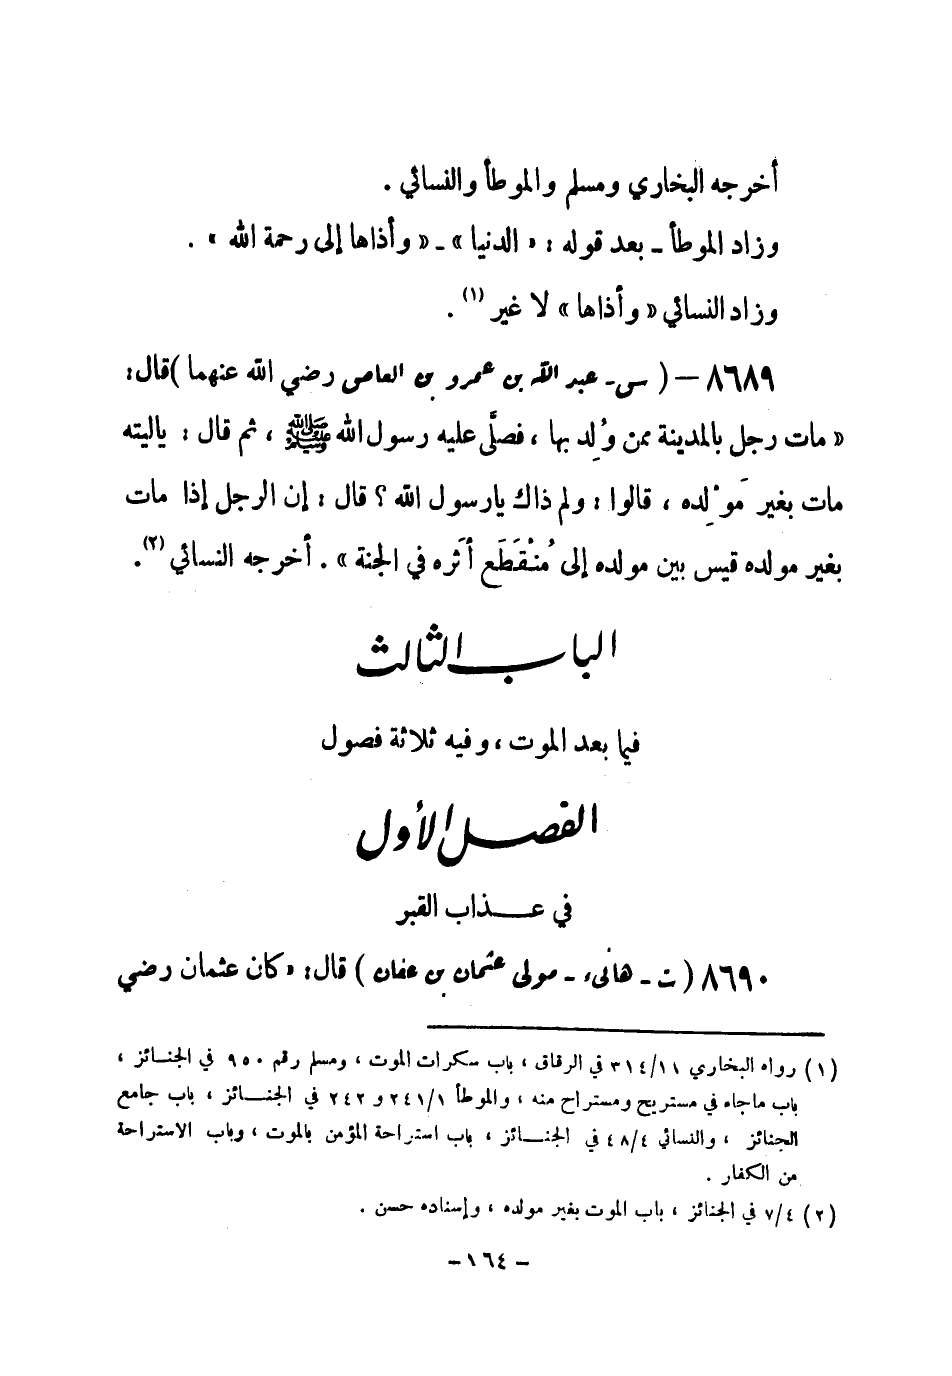 أخرجه البخاري ومسلم والموطأ والنسائي .
وزاد الموطأ ـ بعد قوله : « الدنيا » ـ « وأذاها إلى رحمة الله » .
وزاد النسائي « وأذاها » لا غير (١) .
٨٦٨٩ – ( س ـ عبد الله بن عمرو بن العاص رضي الله عنهما ) قال :
« مات رجل بالمدينة ممن وُلِد بها ، فصلَّى عليه رسول الله ﷺ ، ثم قال : ياليته
مات بغير مَوْلِده ، قالوا : ولم ذاك يارسول الله ؟ قال : إن الرجل إذا مات
بغير مولده قيس بين مولده إلى مُنْقَطَعِ أثَره في الجنة » . أخرجه النسائي (٢) .
الباب الثالث
فيما بعد الموت ، وفيه ثلاثة فصول
الفصل الأول
في عـــذاب القبر
٨٦٩٠ ( ت ـ هانىء ـ مولى عثمان بن عفان ) قال : « كان عثمان رضي
(١) رواه البخاري ٣١٤/١١ في الرقاق ، باب سكرات الموت ، ومسلم رقم ٩٥٠ في الجنـائز ،
باب ماجاء في مستريح ومستراح منه ، والموطأ ٢٤١/١ و ٢٤٢ في الجنـــائز ، باب جامع
الجنائز ، والنسائي ٤٨/٤ في الجنـــائز ، باب استراحة المؤمن بالموت ، وباب الاستراحة
من الكفار .
(٢) ٧/٤ في الجنائز ، باب الموت بغير مولده ، وإسناده حسن .
– ١٦٤ –